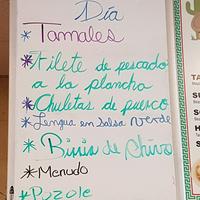 Día
* Tamales
* Filete de pescado
a la plancha
* Chuletas de puerco
* Lengua en Salsa Verde
* Birria de Chivo
* Menudo
* Pozole